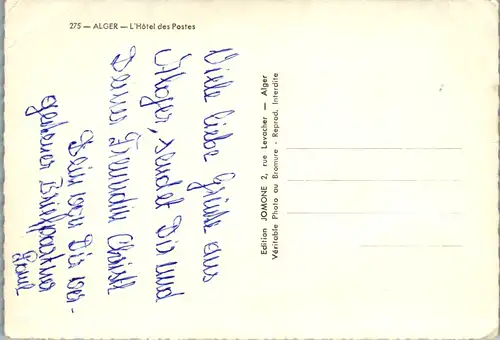 275 — ALGER — L'Hôtel des Postes
Viele liebe Grüße aus
Alger, sendet Dir und
Deiner Freundin Christl
Dein von Dir ver-
gebener Briefpartner
Edition JOMONE 2, rue Levacher — Alger
Véritable Photo au Bromure - Reprod. Interdite